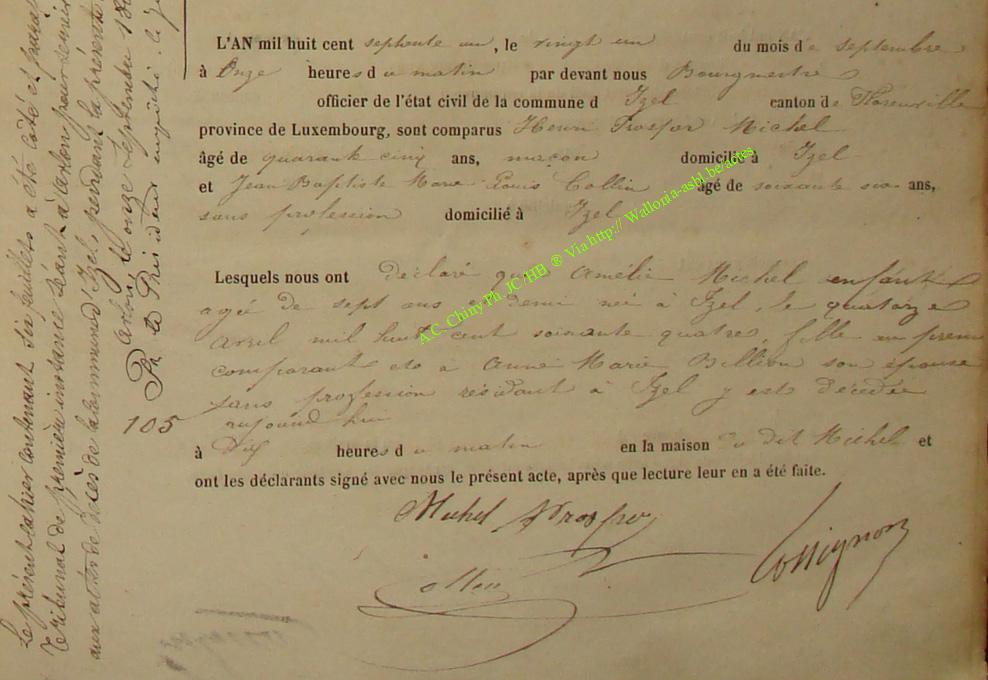 L'AN mil huit cent septente un, le vingt un du mois de septembre
à Onze heures du matin par devant nous Bourgmestre
officier de l'état civil de la commune d Izel canton de Florenville
province de Luxembourg, sont comparus Henri Prosper Michel
âgé de quarante cinq ans, maçon domicilié à Izel
et Jean Baptiste Marie Louis Collin âgé de soixante six ans,
sans profession domicilié à Izel
Lesquels nous ont déclaré que Amélie Michel enfant
agée de sept ans et demi née à Izel, le quatorze
avril mil huit cent soixante quatre, fille au premier
comparant et à Anne Marie Billion son épouse
sans profession résidant à Izel y est décédée
aujourd hui
105
à Dix heures du matin en la maison du dit Michel et
ont les déclarants signé avec nous le présent acte, après que lecture leur en a été faite.
Michel Prosper
Collin
Cossignon
Le présent cahier contenant six feuillets a été coté et
Tribunal de première instance séant à Arlon pour servir
aux actes de Décès de la commune d'Izel, pendant la présente
Arlon, le onze septembre
Pr le Président empêché, le
A.C. Chiny Ph. JC HB ® Via http:// Wallonia-asbl.be/actes